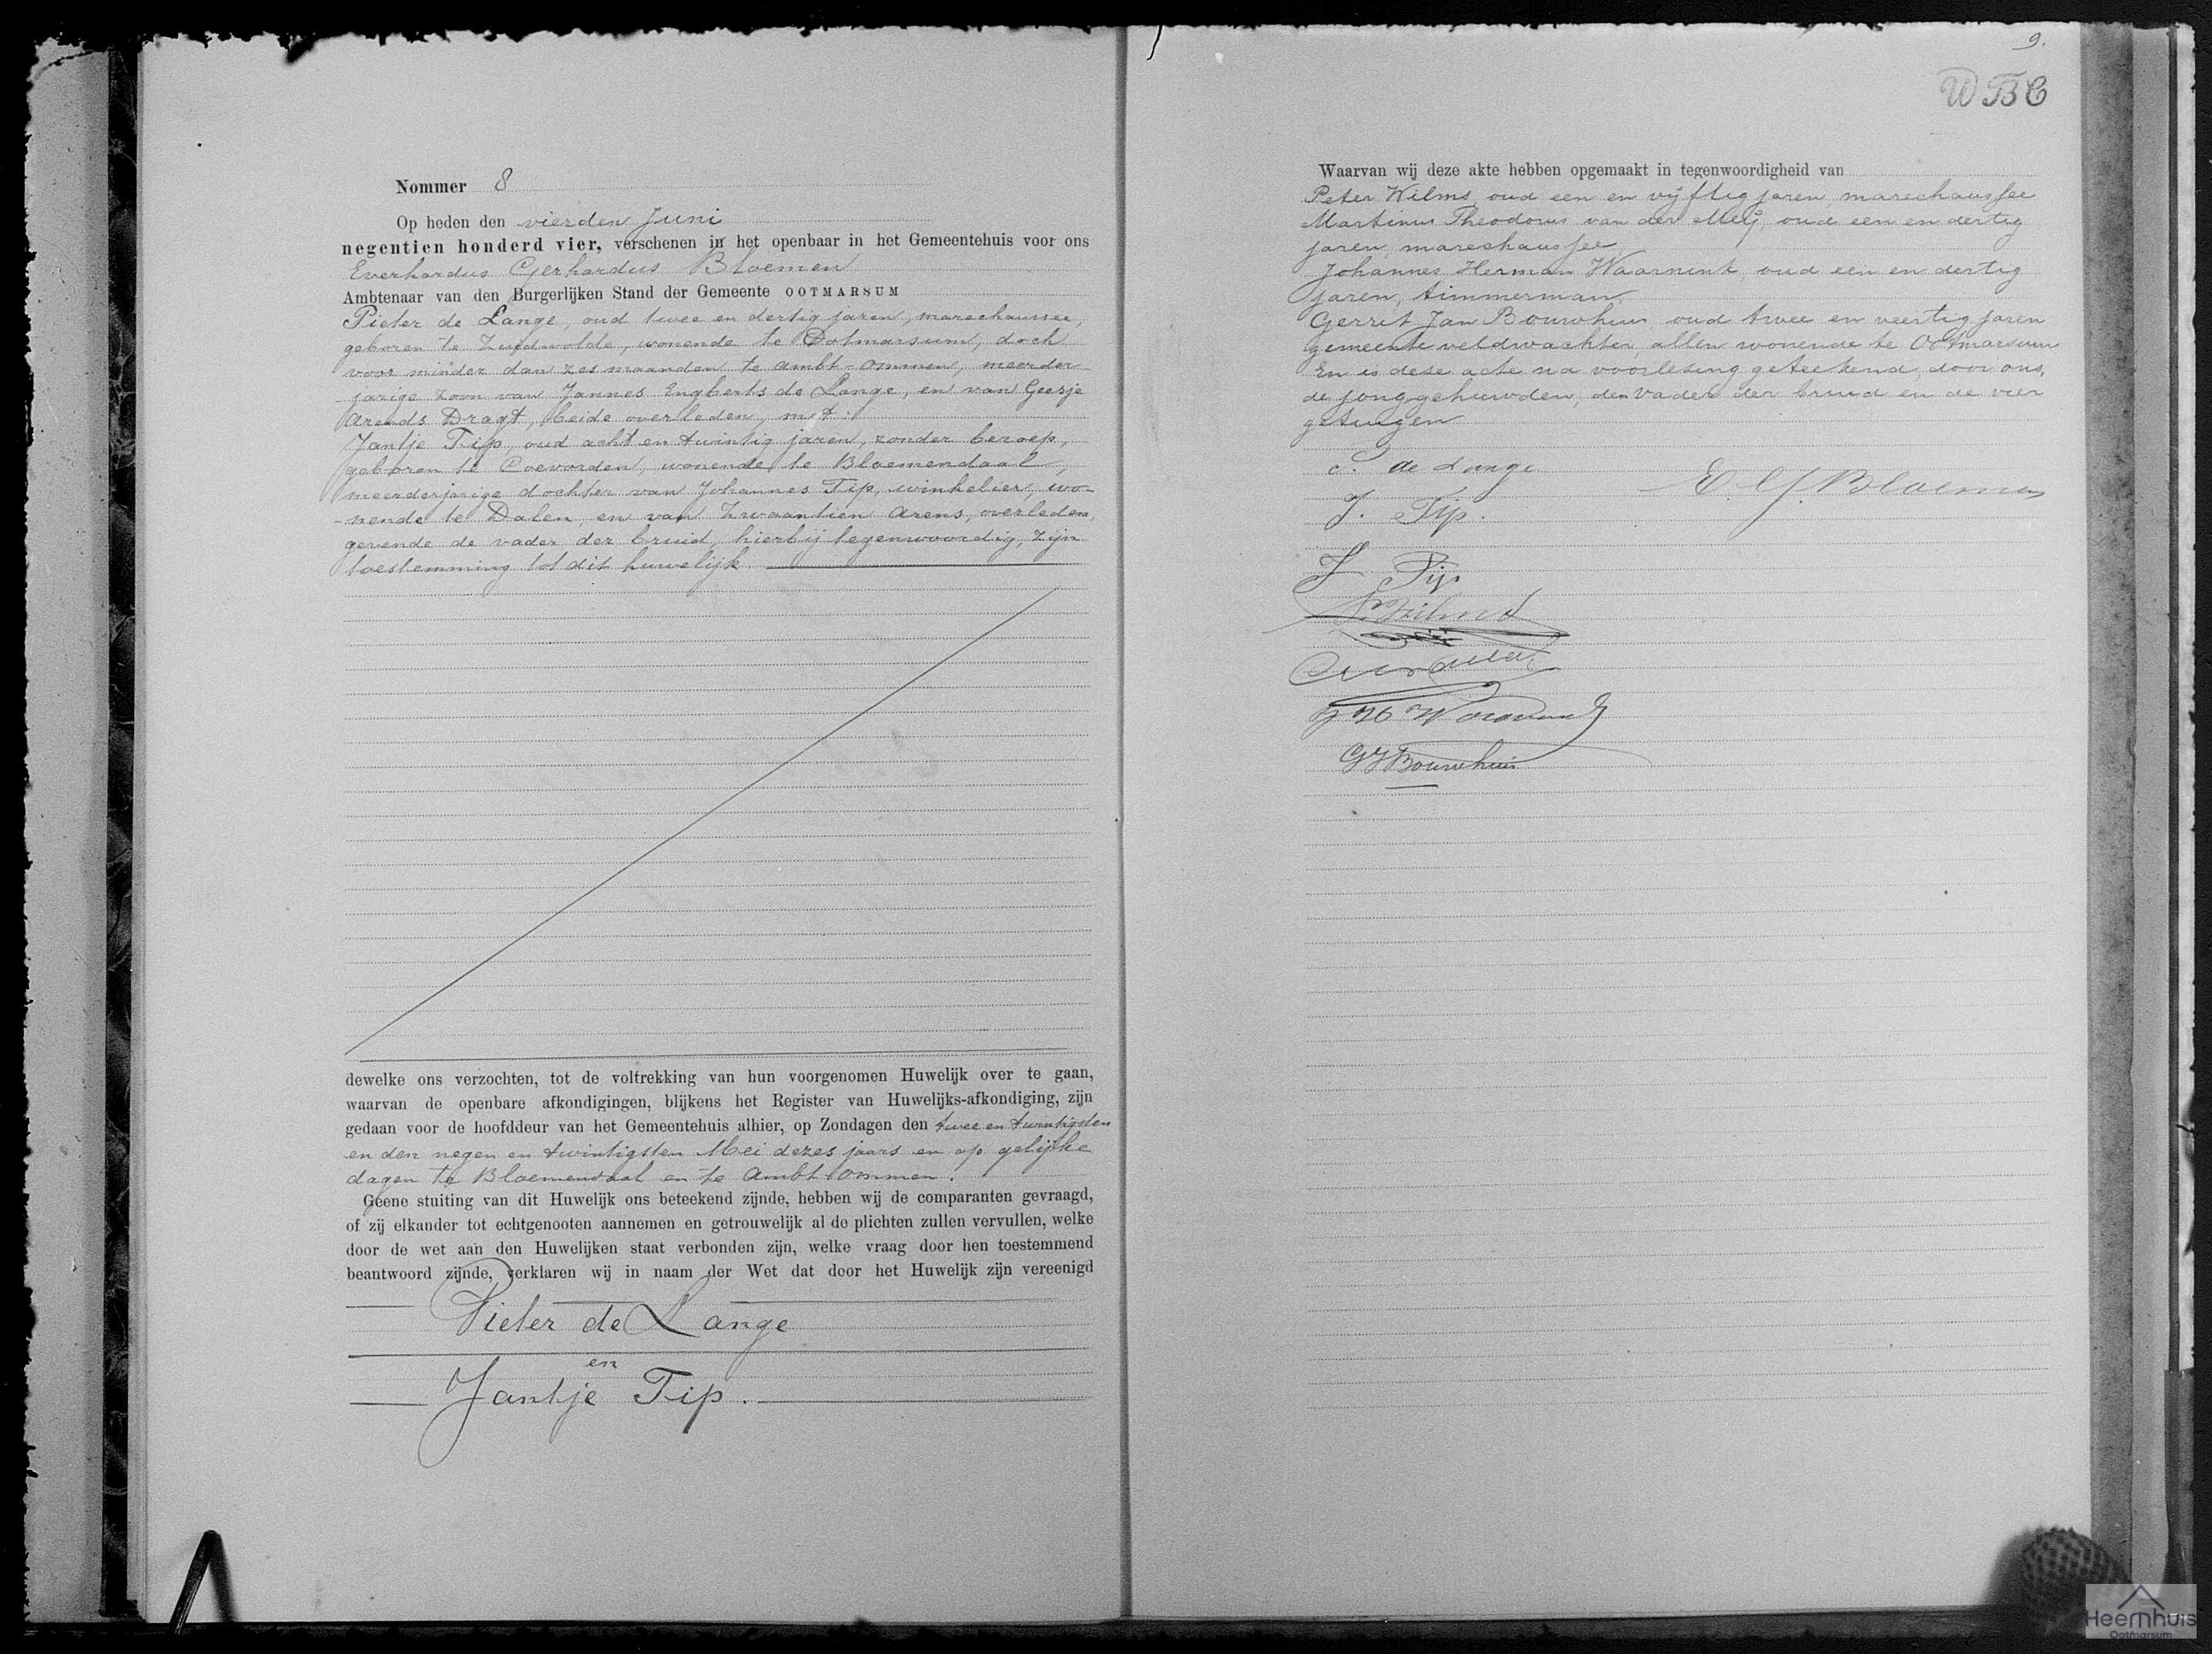 Nommer 8
Op heden den vierden Juni
negentien honderd vier, verschenen in het openbaar in het Gemeentehuis voor ons
Everhardus Gerhardus Bloemen
Ambtenaar van den Burgerlijken Stand der Gemeente OOTMARSUM
Pieter de Lange, oud twee en dertig jaren, marechaussee,
geboren te Zuidwolde, wonende te Ootmarsum, doch
voor minder dan zes maanden te Ambt-Ommen, meerder-
-jarige zoon van Jannes Engberts de Lange, en van Geesje
Arends Dragt, beide overleden, met:
Jantje Tip, oud acht en twintig jaren, zonder beroep,
geboren te Coevorden, wonende te Bloemendaal,
meerderjarige dochter van Johannes Tip, winkelier, wo-
-nende te Dalen, en van Zwaantien Arens, overleden,
gevende de vader der bruid, hierbij tegenwoordig, zijn
toestemming tot dit huwelijk.
dewelke ons verzochten, tot de voltrekking van hun voorgenomen Huwelijk over te gaan,
waarvan de openbare afkondigingen, blijkens het Register van Huwelijks-afkondiging, zijn
gedaan voor de hoofddeur van het Gemeentehuis alhier, op Zondagen den twee en twintigsten
en den negen en twintigsten Mei dezes jaars en op gelijke
dagen te Bloemendaal en te Ambt Ommen.
Geene stuiting van dit Huwelijk ons beteekend zijnde, hebben wij de comparanten gevraagd,
of zij elkander tot echtgenooten aannemen en getrouwelijk al de plichten zullen vervullen, welke
door de wet aan den Huwelijken staat verbonden zijn, welke vraag door hen toestemmend
beantwoord zijnde, verklaren wij in naam der Wet dat door het Huwelijk zijn vereenigd
Pieter de Lange
en
Jantje Tip.
9.
WBC
Waarvan wij deze akte hebben opgemaakt in tegenwoordigheid van
Peter Wilms, oud een en vijftig jaren, marechaussee
Martinus Theodorus van der Meij, oud een en dertig
jaren, marechaussee,
Johannes Herman Waarnink, oud een en dertig
jaren, timmerman,
Gerrit Jan Bouwhuis oud twee en veertig jaren
gemeente veldwachter, allen wonende te Ootmarsum
En is deze acte na voorlesing geteekend, door ons,
de jonggehuwden, den vader der bruid en de vier
getuigen
P. de Lange
E. G. Bloemen
J. Tip.
J Tip
P. Wilms
J H Waarnink
GJ Bouwhuis
Heemhuis
Ootmarsum